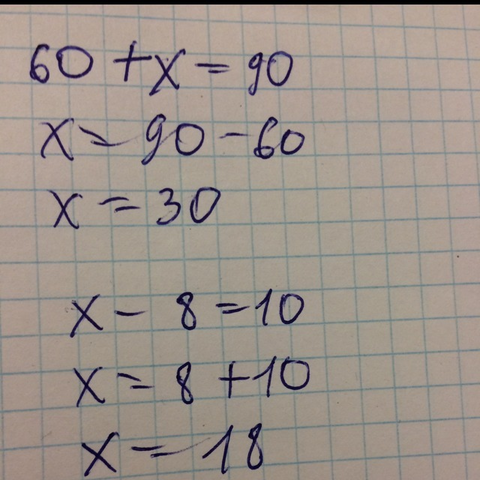 60 + x = 90
x = 90 - 60
x = 30
x - 8 = 10
x = 8 + 10
x = 18